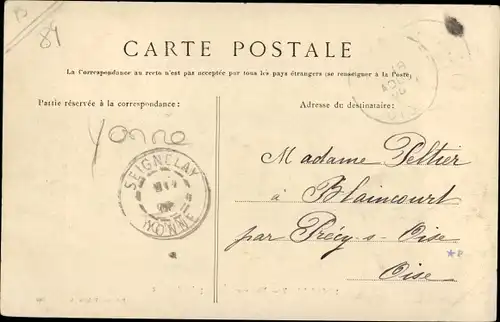 84
CARTE POSTALE
La Correspondance au recto n'est pas acceptée par tous les pays étrangers (se renseigner à la Poste)
Partie réservée à la correspondance :
Adresse du destinataire :
Yonne
SEIGNELAY
YONNE
Madame Peltier
à Blaincourt
par Précy-s-Oise
Oise